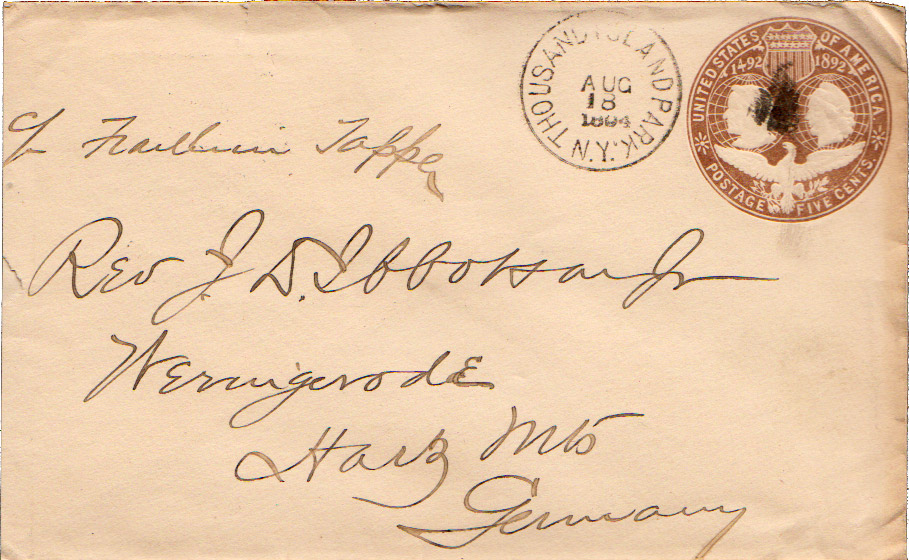 THOUSAND ISLAND PARK. N.Y.
AUG
18
1894
UNITED STATES OF AMERICA.
1492 1892
POSTAGE FIVE CENTS.
c/o Fraulein Tappe
Rev J. D. Ibbotson Jr
Wernigerode
Harz Mts
Germany